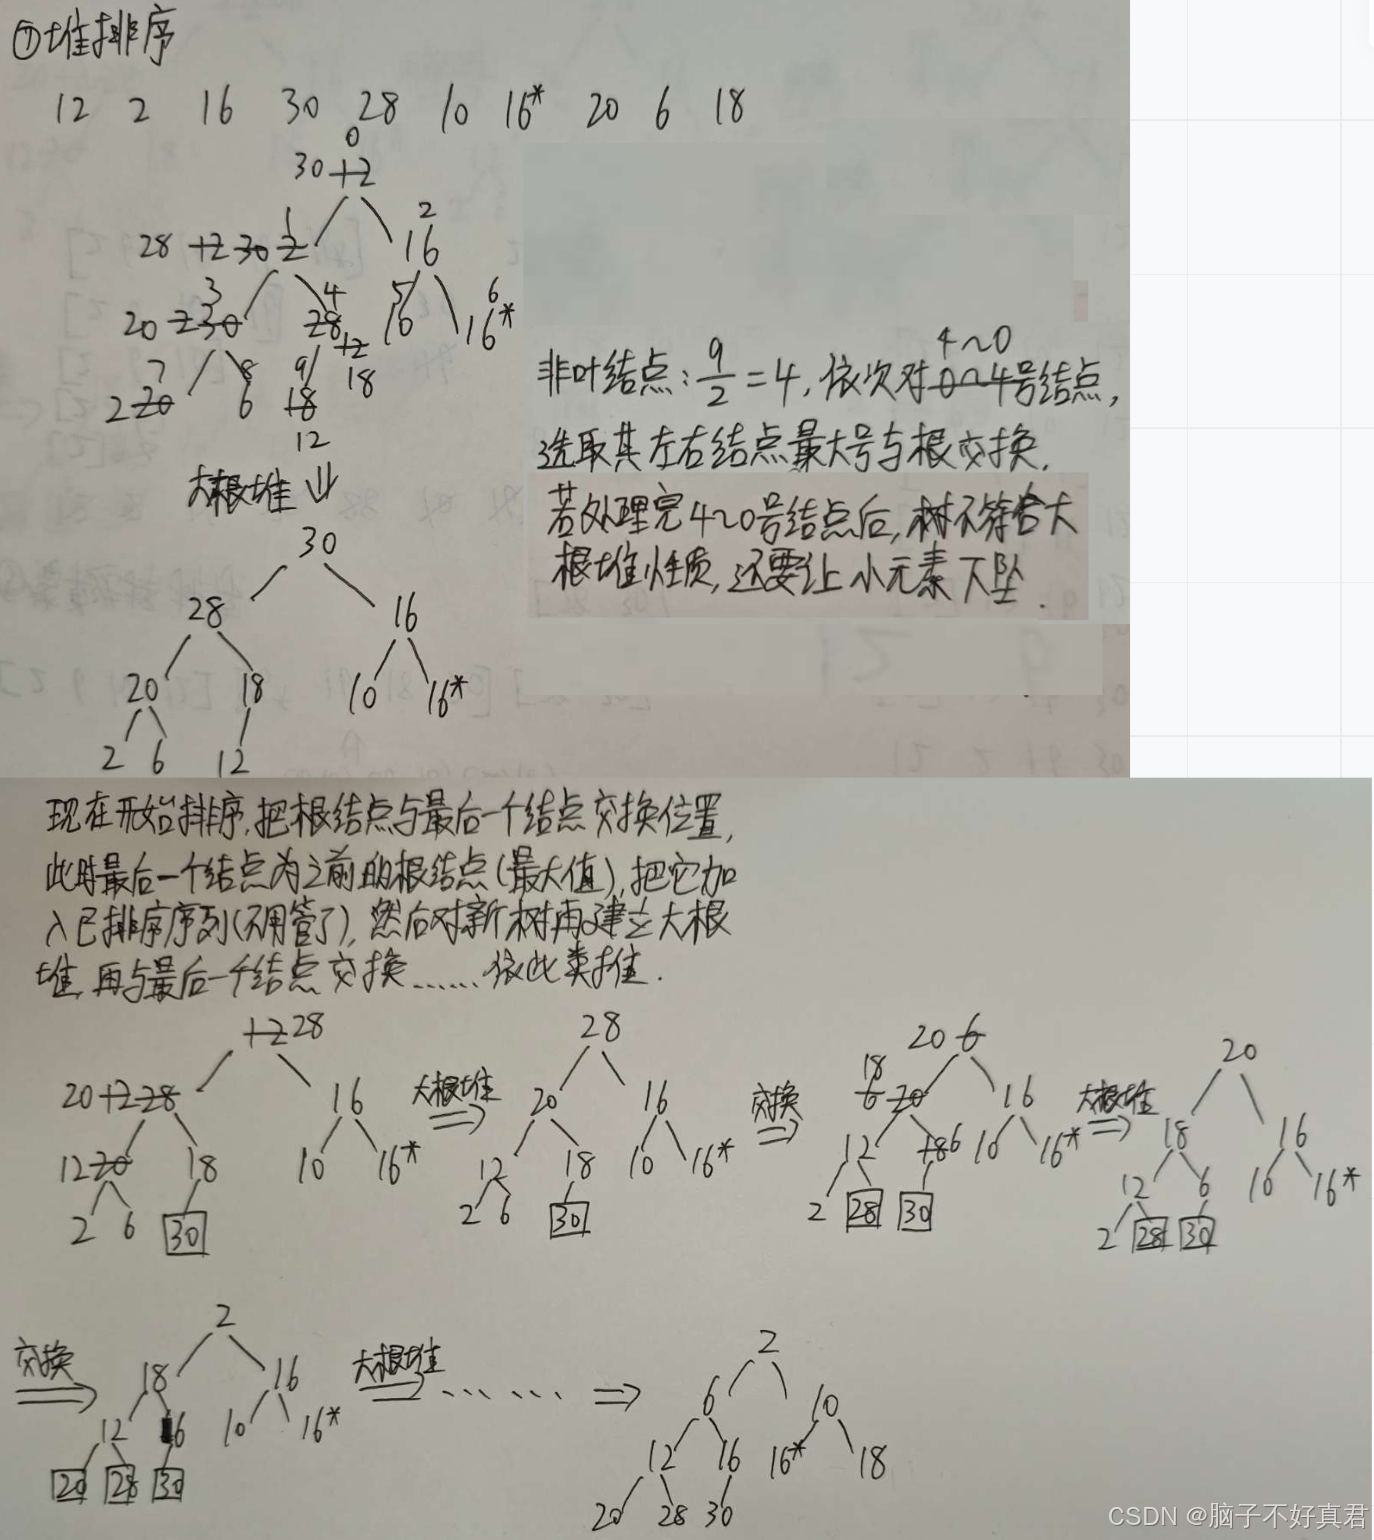 ⑦堆排序
12 2 16 30 28 10 16* 20 6 18
0
30 12
1 2
28 12 30 2 16
3 4 5 6
20 2 30 28 10 16*
12
7 8 9 18
2 20 6 18
12
大根堆
30
28 16
20 18 10 16*
2 6 12
4~0
非叶结点:9/2=4,依次对0~4号结点,
选取其左右结点最大号与根交换.
若处理完4~0号结点后,树不符合大
根堆性质,还要让小元素下坠.
现在开始排序,把根结点与最后一个结点交换位置,
此时最后一个结点为之前的根结点(最大值),把它加
入已排序序列(不用管了),然后对新树再建立大根
堆,再与最后一个结点交换......依此类推.
12 28
20 12 28 16
12 20 18 10 16*
2 6 30
大根堆
28
20 16
12 18 10 16*
2 6 30
交换
20 6
18
6 20 16
12 18 6 10 16*
2 28 30
大根堆
20
18 16
12 6 10 16*
2 28 30
交换
2
18 16
12 6 10 16*
20 28 30
大根堆
......
2
6 10
12 16 16* 18
20 28 30
CSDN @脑子不好真君